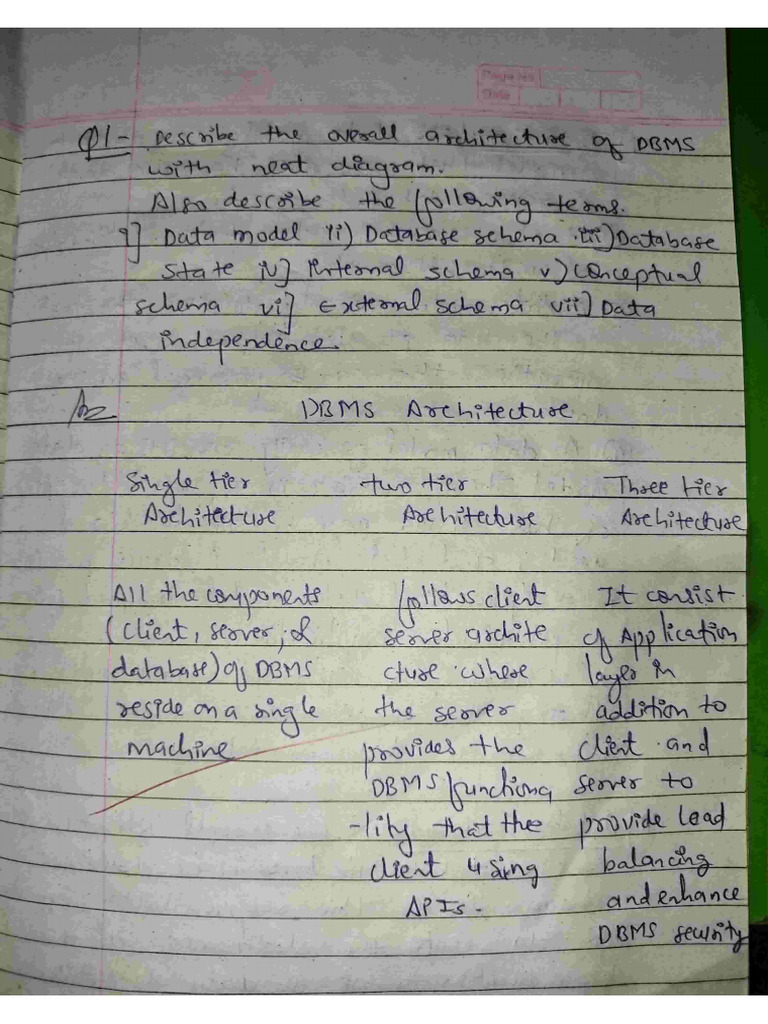 Page No.
Date
Q1- Describe the overall architecture of DBMS
with neat diagram.
Also describe the following terms.
i] Data model ii) Database schema iii) Database
state iv] internal schema v) conceptual
schema vi] External schema vii] Data
independence.
DBMS Architecture
Single tier
Architecture
two tier
Architecture
Three tier
Architecture
All the components
(client, server, &
database) of DBMS
reside on a single
machine
follows client
server archite
cture where
the server
provides the
DBMS functiona
-lity that the
client using
APIs.
It consist
of Application
layer in
addition to
client and
server to
provide load
balancing
and enhance
DBMS security